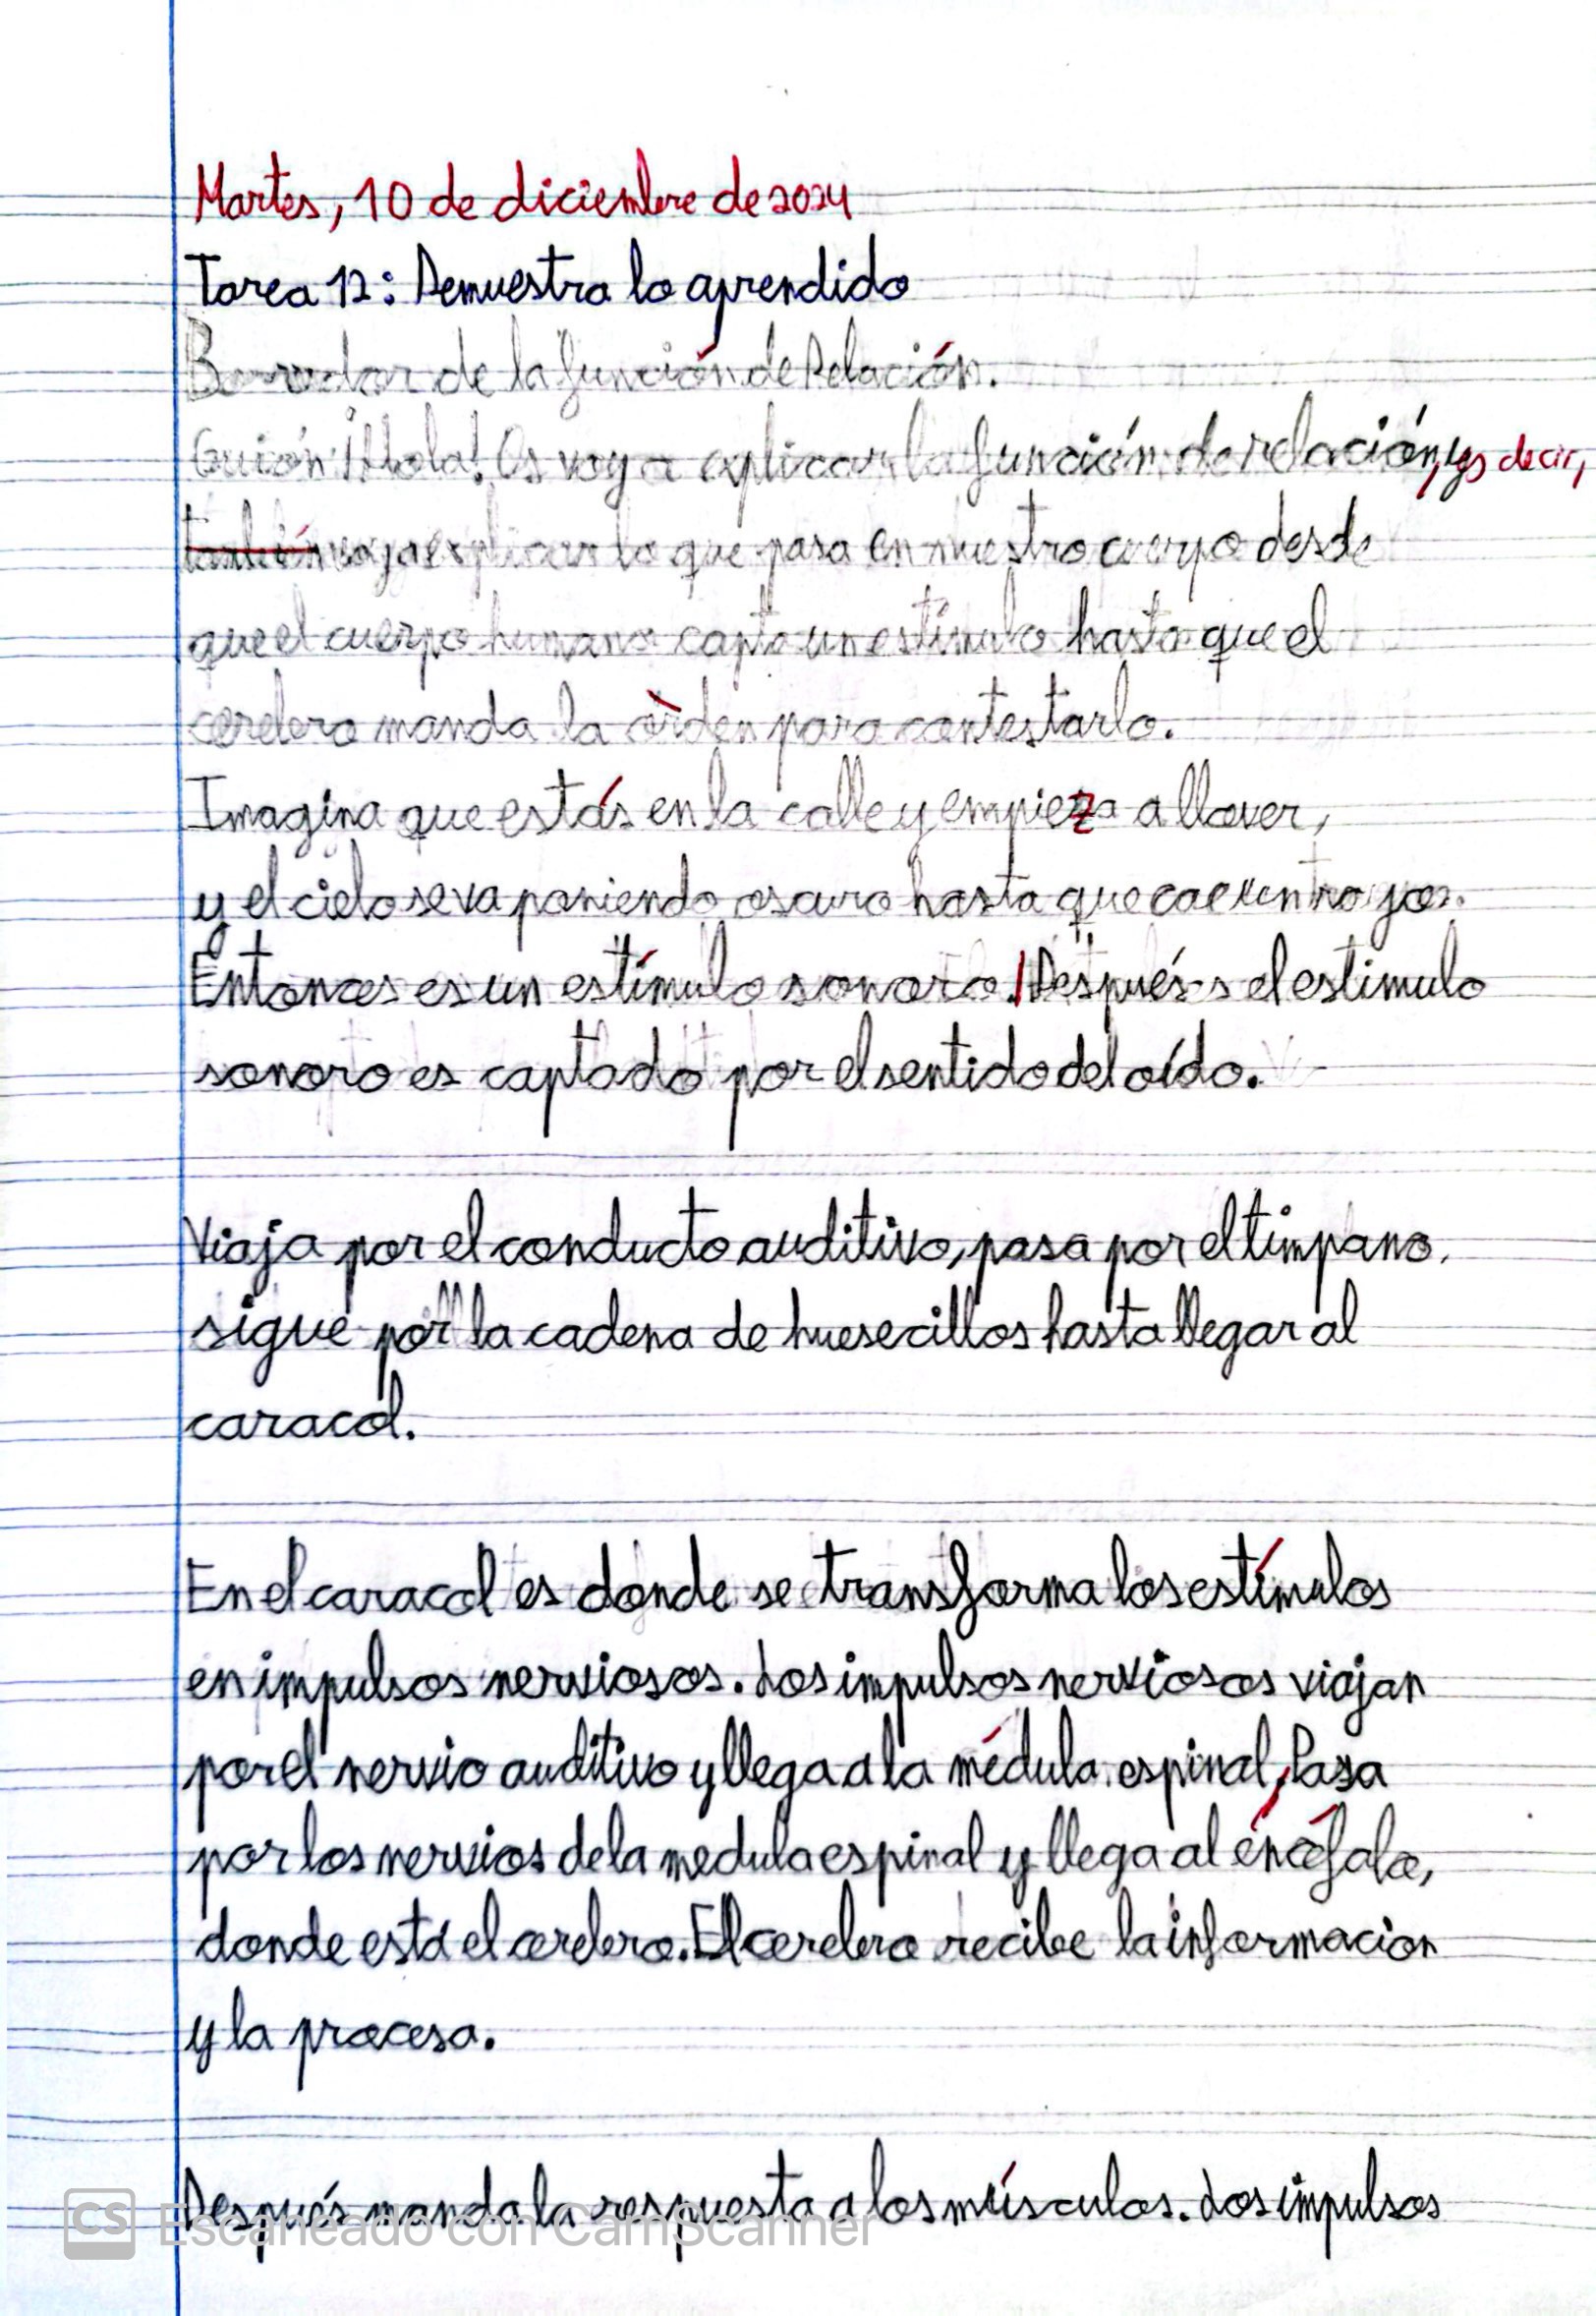 Martes, 10 de diciembre de 2024
Tarea 12: Demuestra lo aprendido
Borrador de la función de Relación.
Guión: ¡Hola! Os voy a explicar la función de relación, es decir,
también voy a explicar lo que pasa en nuestro cuerpo desde
que el cuerpo humano capta un estímulo hasta que el
cerebro manda la orden para contestarlo.
Imagina que estás en la calle y empieza a llover,
y el cielo se va poniendo oscuro hasta que cae un rayo.
Entonces es un estímulo sonoro. Después el estimulo
sonoro es captado por el sentido del oído.
Viaja por el conducto auditivo, pasa por el tímpano,
sigue por la cadena de huesecillos hasta llegar al
caracol.
En el caracol es donde se transforma los estímulos
en impulsos nerviosos. Los impulsos nerviosos viajan
por el nervio auditivo y llega a la médula espinal, Pasa
por los nervios de la medula espinal y llega al encéfalo,
donde está el cerebro. El cerebro recibe la informacion
y la procesa.
Después manda la respuesta a los músculos. Los impulsos
CS Escaneado con CamScanner